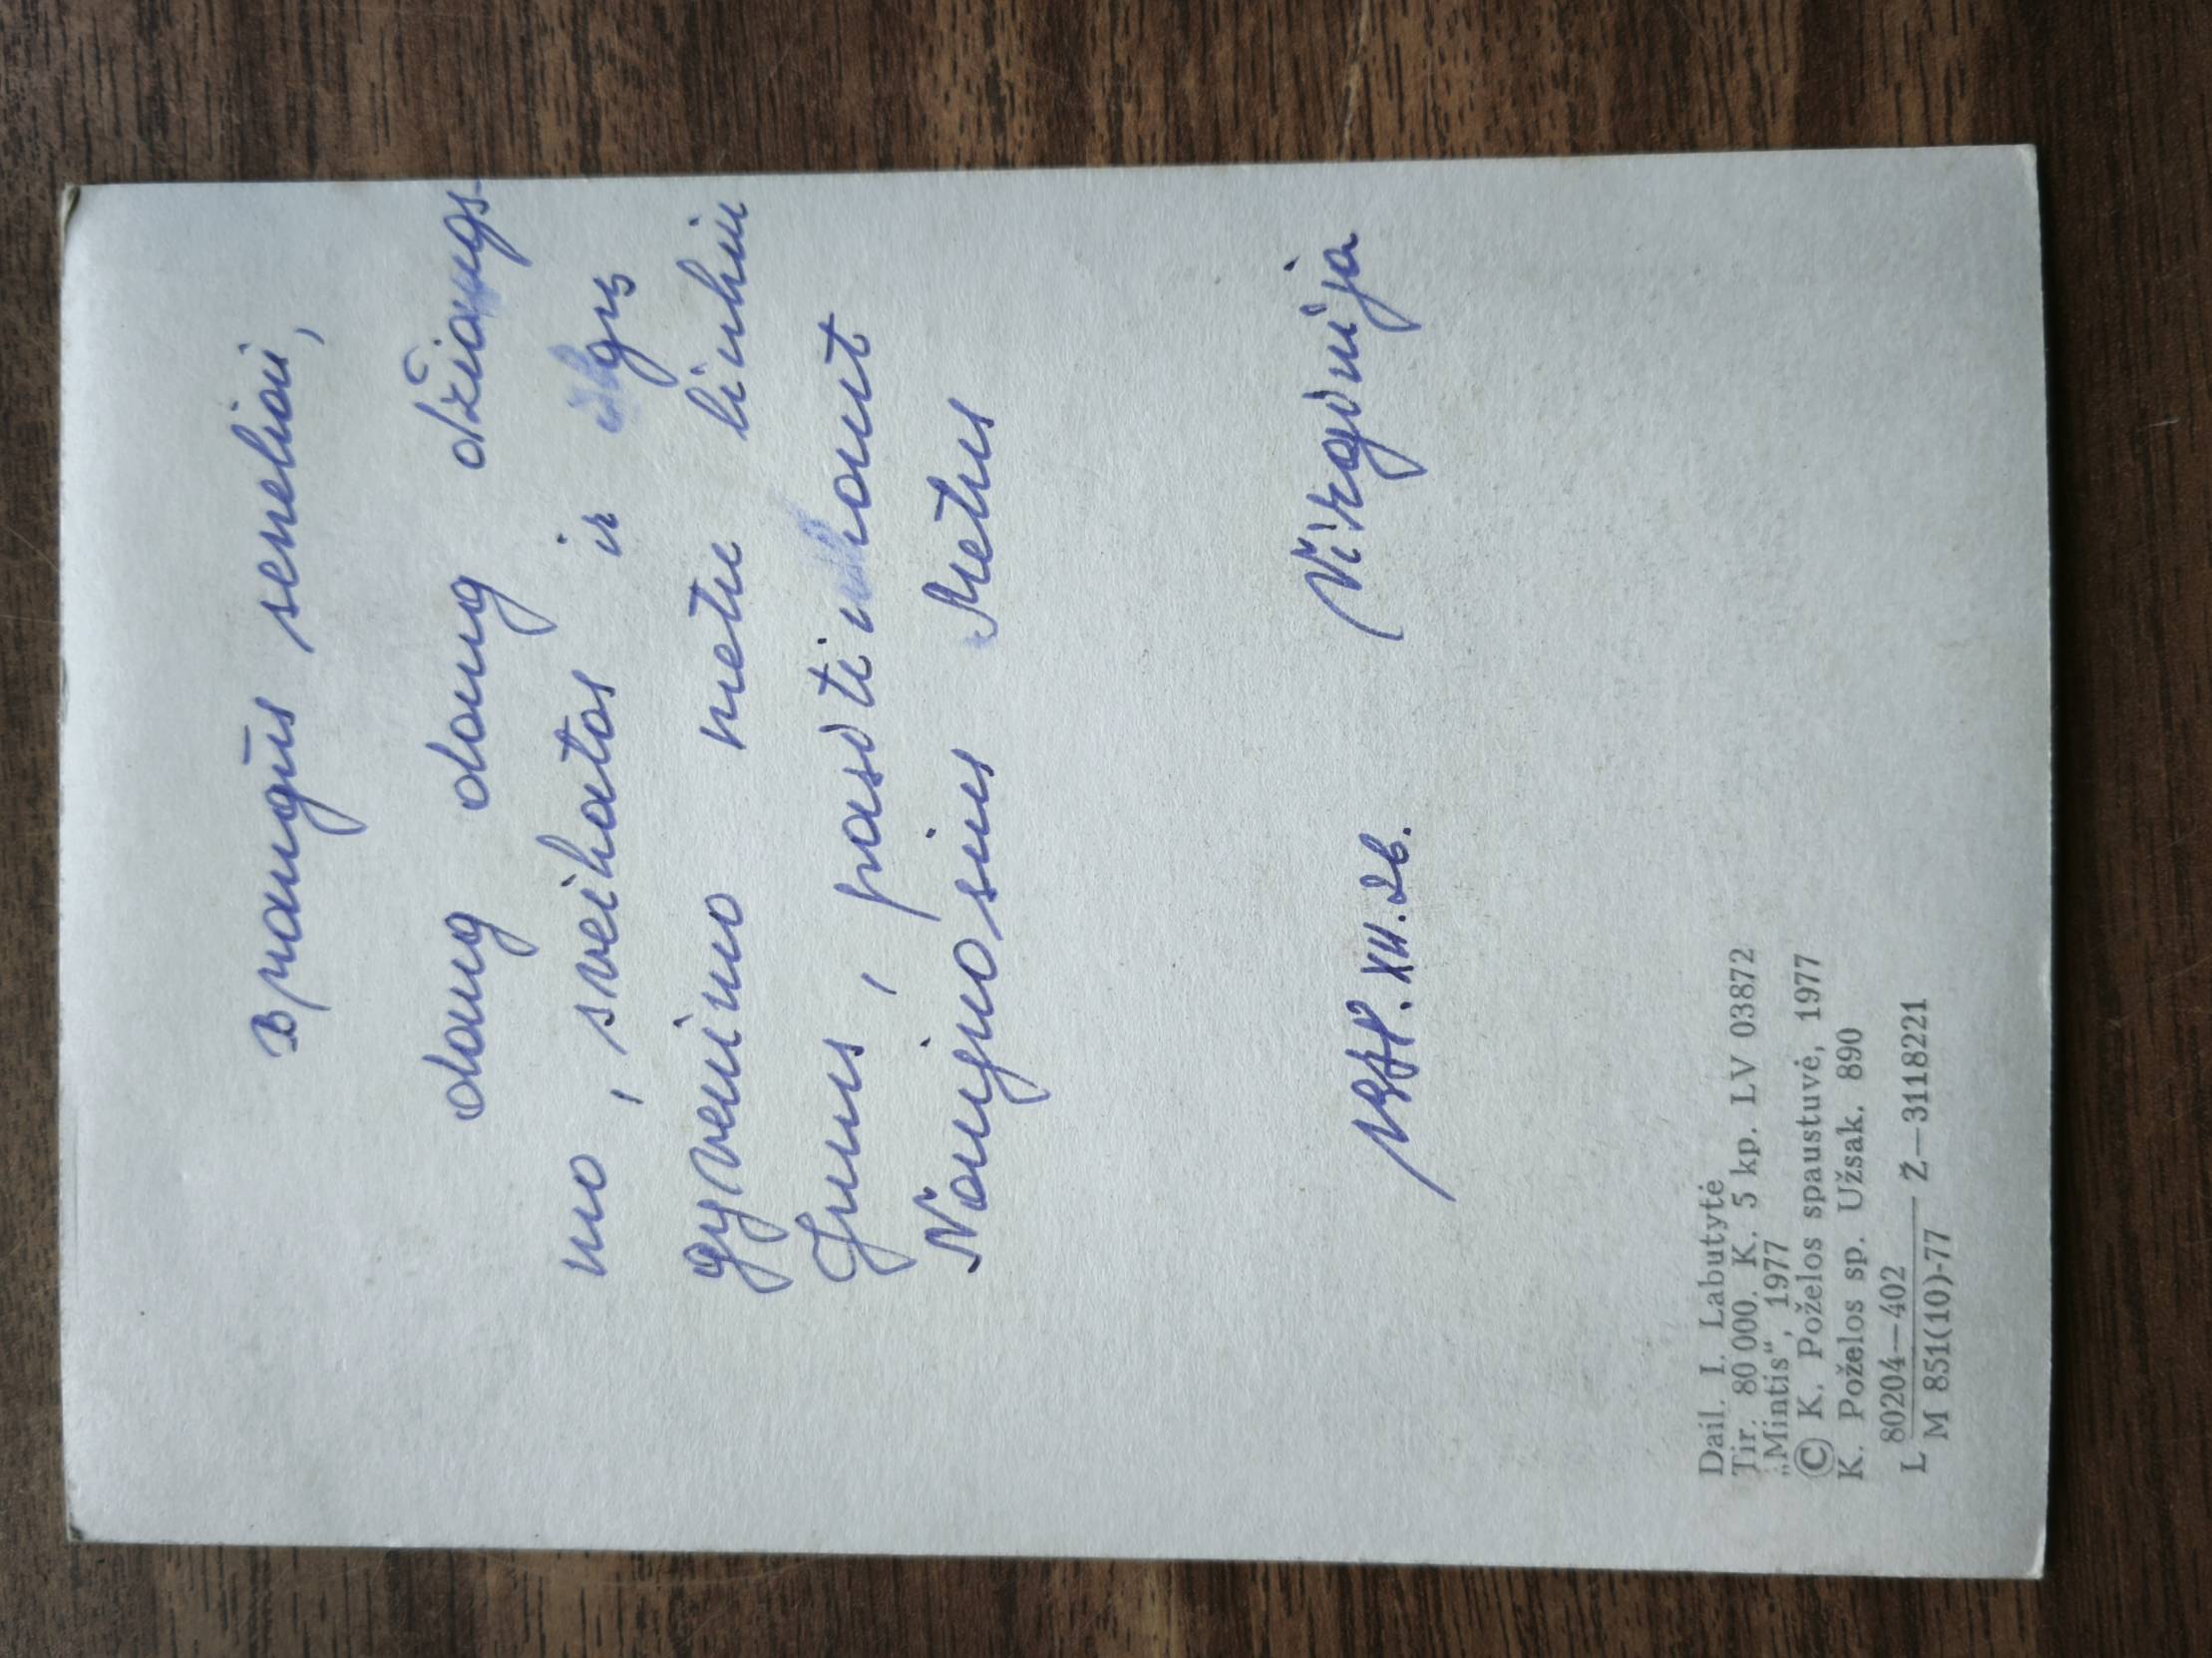 Brangūs seneliai,
daug daug džiaugs-
mo, sveikatos ir ilgų
gyvenimo metu linkiu
Jums, pasitinkant
Naujuosius Metus
Virginija
XII.26.
Dail. I. Labutytė
Tir. 80 000. K. 5 kp. LV 03872
„Mintis“, 1977
© K. Poželos spaustuvė, 1977
K. Poželos sp. Užsak. 890
L 80204—402
M 851(10)-77 Ž—3118221